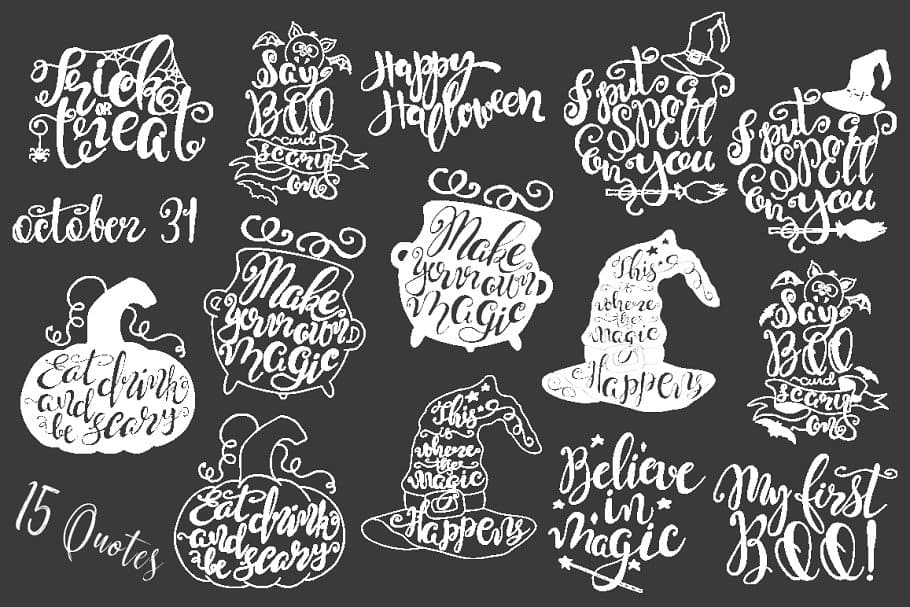 Trick
or
treat
Say
BOO
and
scary
on
Happy
Halloween
I put a
SPELL
on you
I put a
SPELL
on you
october 31
Make
your own
magic
Make
your own
magic
This
is
where
the
magic
Happens
Say
BOO
and
scary
on
Eat drink
and
be scary
Eat drink
and
be scary
This
is
where
the
magic
Happens
Believe
in
magic
My first
BOO!
15 Quotes